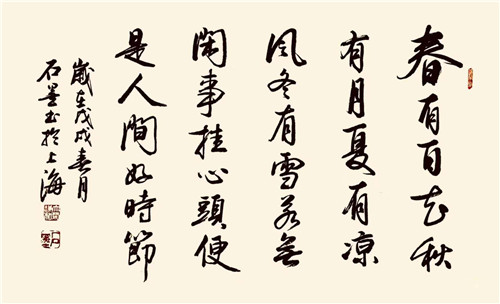 春有百花秋
有月夏有凉
风冬有雪若無
閑事挂心頭便
是人間好時節
歲在戊戌春月
石墨书於上海